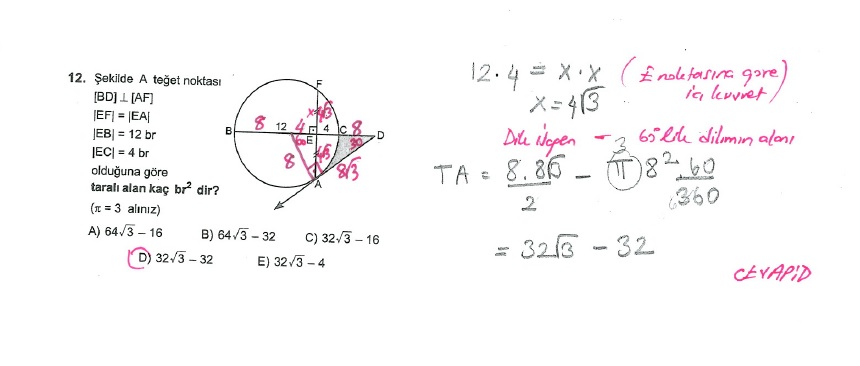 12. Şekilde A teğet noktası
[BD] ⊥ [AF]
|EF| = |EA|
|EB| = 12 br
|EC| = 4 br
olduğuna göre
taralı alan kaç br² dir?
(π = 3 alınız)
A) 64√3 – 16 B) 64√3 – 32 C) 32√3 – 16
D) 32√3 – 32 E) 32√3 – 4
F
x=4√3
B 8 12 4 4 C 8 D
60 E 30
8 4√3 8√3
A
12.4 = x.x (E noktasına göre
iç kuvvet)
x = 4√3
Dik üçgen – 60° lik dilimin alanı
3
TA = 8.8√3 / 2 – π 8².60 / 360
6
= 32√3 – 32
CEVAP D